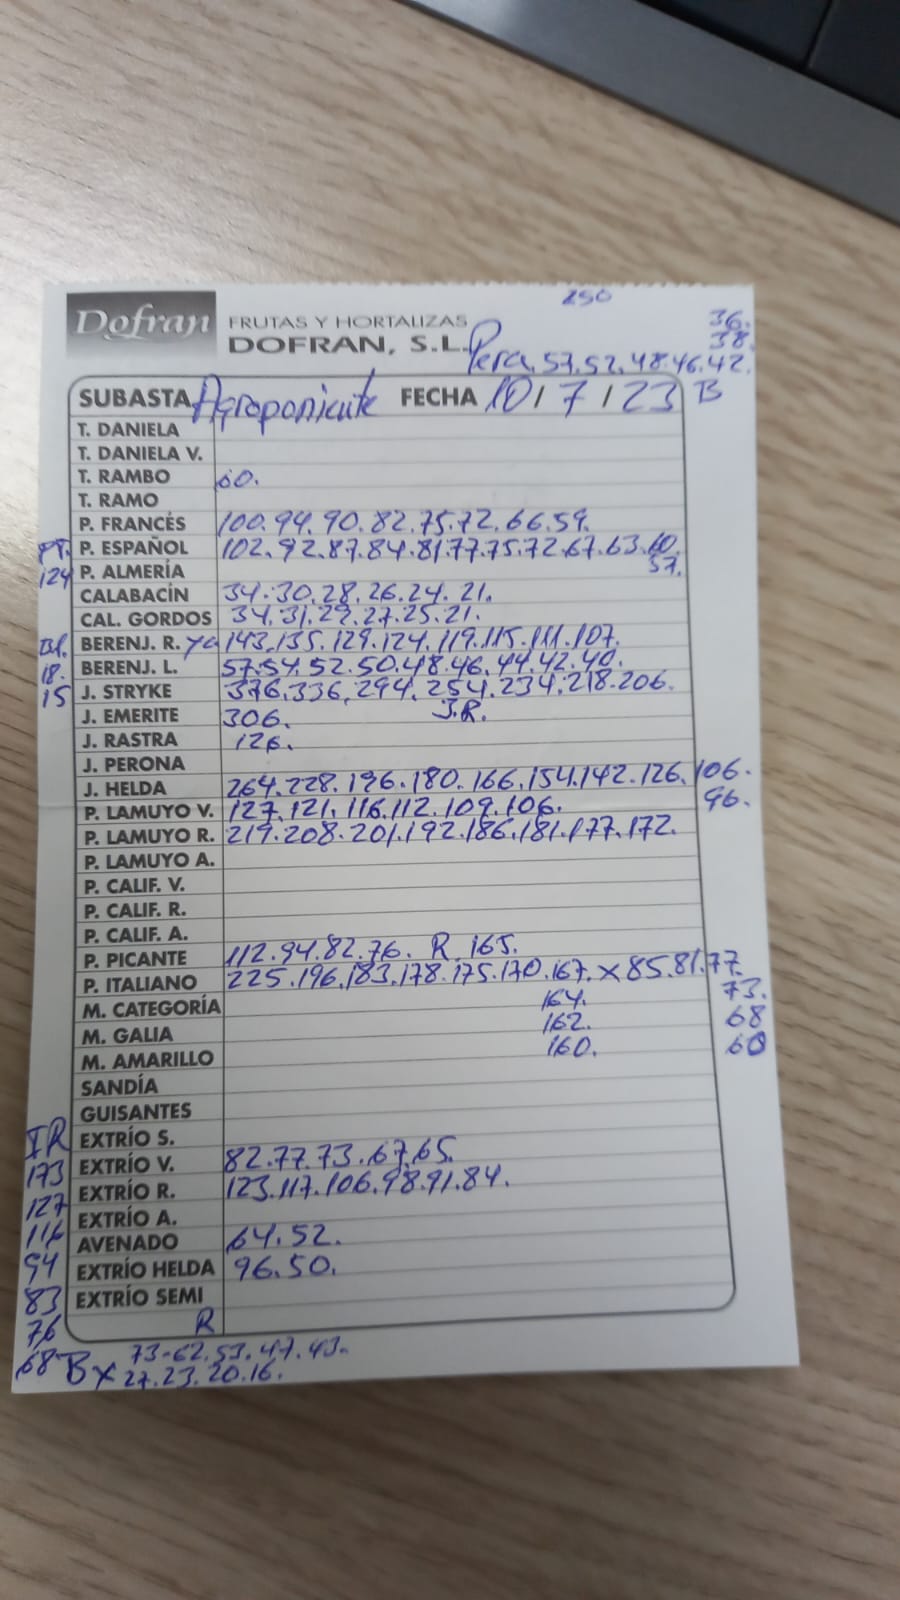 250
Dofran FRUTAS Y HORTALIZAS 36.
DOFRAN, S.L. 38.
Pera. 57.52.48.46.42.
SUBASTA Agroponiente FECHA 10/7/23 B
T. DANIELA
T. DANIELA V.
T. RAMBO 60.
T. RAMO
P. FRANCÉS 100.94.90.82.75.72.66.59.
PT. P. ESPAÑOL 102.92.87.84.81.77.75.72.67.63.60.
124 P. ALMERÍA 57.
CALABACÍN 34.30.28.26.24.21.
CAL. GORDOS 34.31.29.27.25.21.
Bl. BERENJ. R. 143.135.129.124.119.115.111.107.
18. BERENJ. L. 57.54.52.50.48.46.44.42.40.
15 J. STRYKE 376.336.294.254.234.218.206.
J. EMERITE 306. J.R.
J. RASTRA 126.
J. PERONA
J. HELDA 264.228.196.180.166.154.142.126.106.
P. LAMUYO V. 127.121.116.112.109.106. 96.
P. LAMUYO R. 219.208.201.192.186.181.177.172.
P. LAMUYO A.
P. CALIF. V.
P. CALIF. R.
P. CALIF. A.
P. PICANTE 112.94.82.76. R 165.
P. ITALIANO 225.196.183.178.175.170.167. x 85.81.77.
M. CATEGORÍA 164. 73.
M. GALIA 162. 68
M. AMARILLO 160. 60
SANDÍA
GUISANTES
IR EXTRÍO S.
173 EXTRÍO V. 82.77.73.67.65.
127 EXTRÍO R. 123.117.106.98.91.84.
116 EXTRÍO A.
AVENADO 64.52.
94 EXTRÍO HELDA 96.50.
83 EXTRÍO SEMI
76 R
68 B 73-62.53.47.43.
x 27.23.20.16.